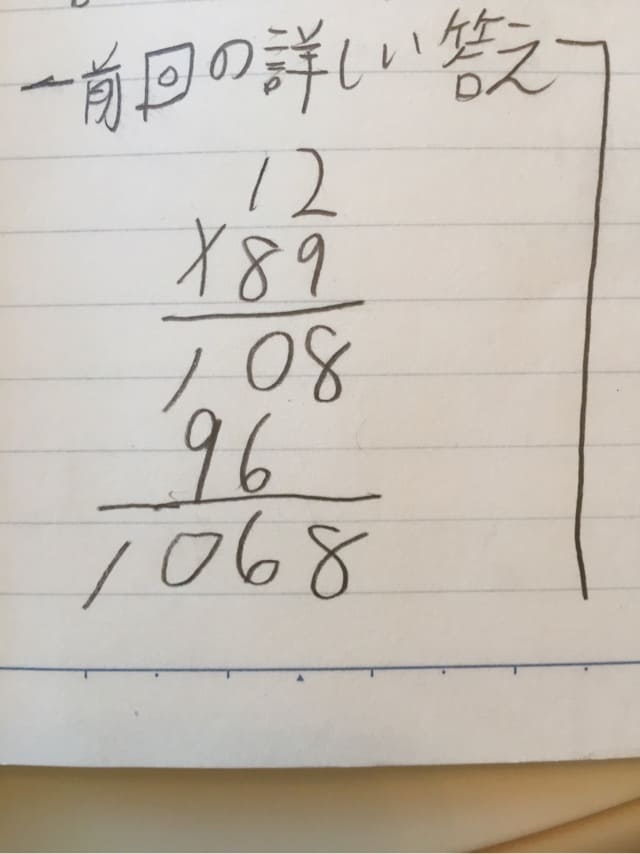 前回の詳しい答え
12
×89
108
96
1068